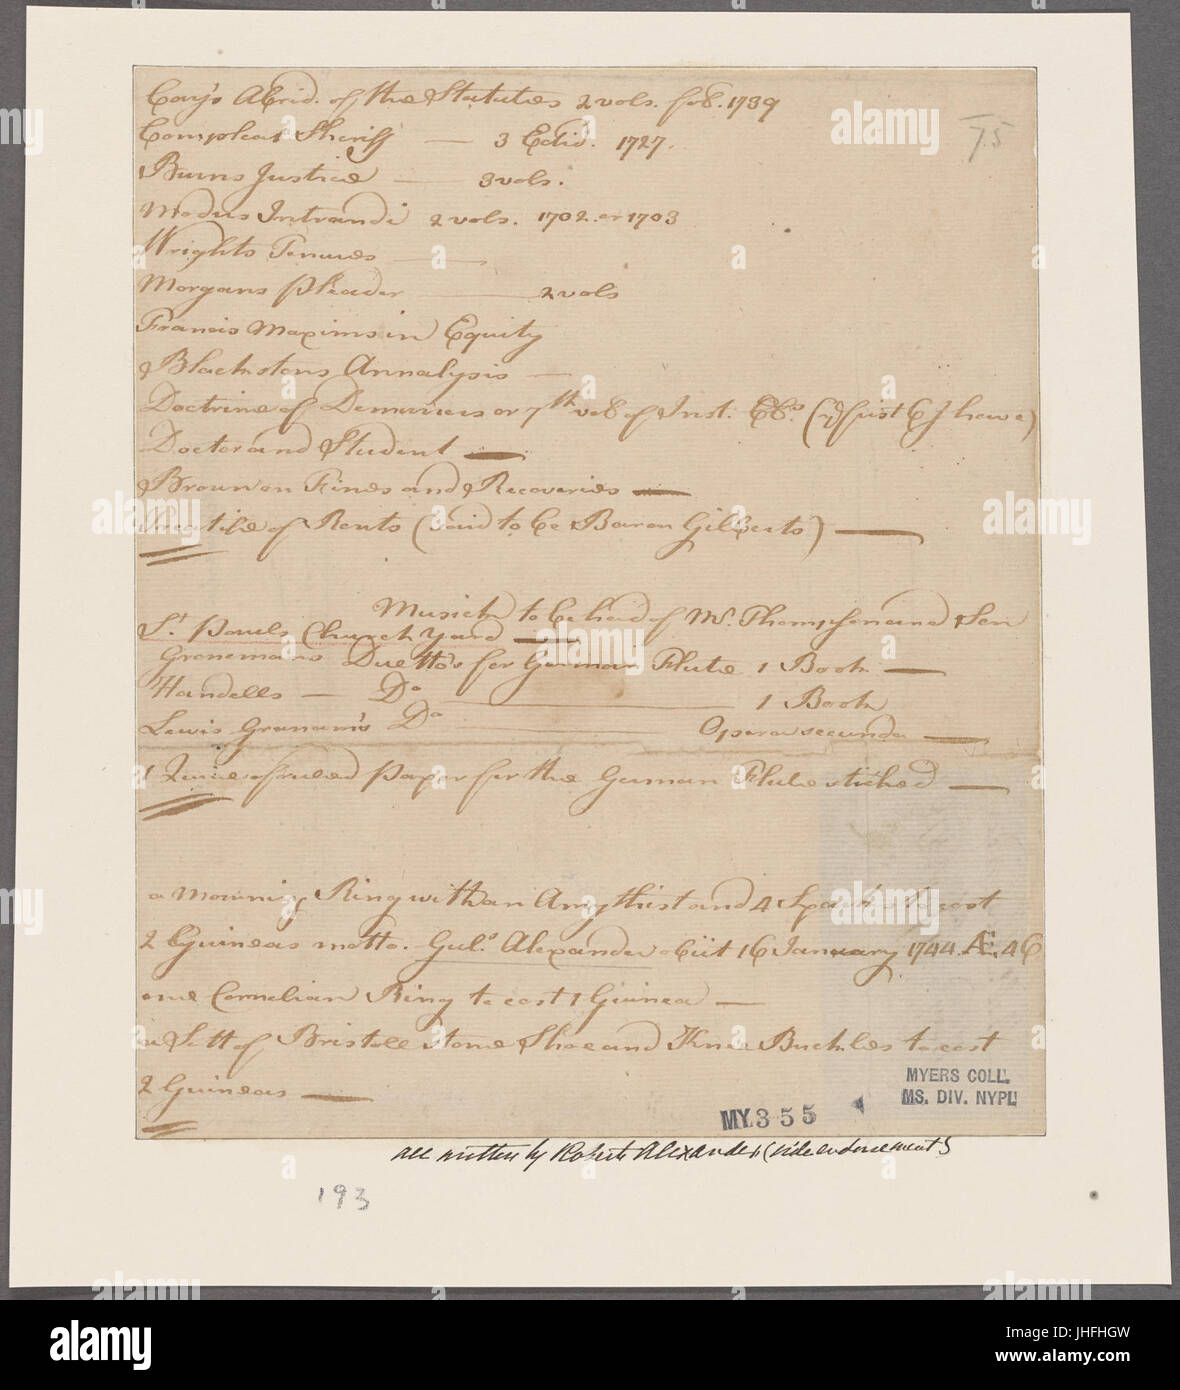 Cay's Abrid. of the Statutes 2 vols. fol. 1739
75
Compleat Sheriff — 3 Edio. 1727.
Burns Justice — 3 vols.
Modus Intrandi 2 vols. 1702. or 1703
Wrights Tenures —
Morgans pleader — 2 vols
Francis Maxims in Equity
Blackstons Annalysis —
Doctrine of Demurrers or 7th vol of Inst. (if first 6 I have)
Doctor and Student —
Brown on Fines and Recoveries —
Treatise of Rents (said to be Baron Gilberts) —
Musick to be had of Mr. Thompson and Son
St. Pauls Church Yard —
Gronemans Duetto's for German Flute 1 Book —
Handells — Do 1 Book
Lewis Granam's Do Opera secunda —
1 Quire of ruled paper for the German Flute stiched —
a Mourning Ring with an Amythist and 4 Sparks to cost
2 Guineas motto. Gul.s Alexander obiit 16 January 1744. Æ. 46
one Cornelian Ring to cost 1 Guinea —
a Sett of Bristoll stone Shoe and Knee Buckles to cost
2 Guineas —
MYERS COLL.
MS. DIV. NYPL
MY.355
all written by Robert Alexander (vide endorsement)
193
alamy
Image ID: JHFHGW
www.alamy.com